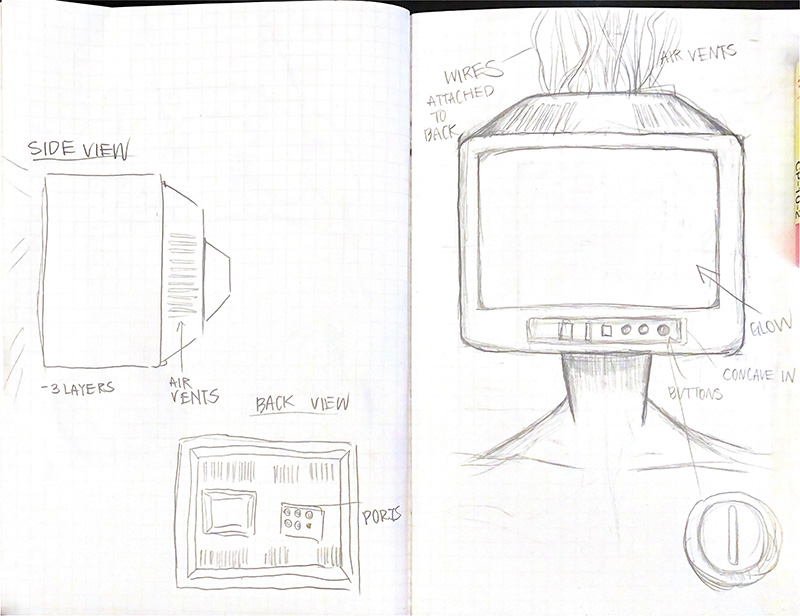 SIDE VIEW
-3 LAYERS
AIR
VENTS
BACK VIEW
PORTS
WIRES
ATTACHED
TO
BACK
AIR VENTS
GLOW
CONCAVE IN
BUTTONS